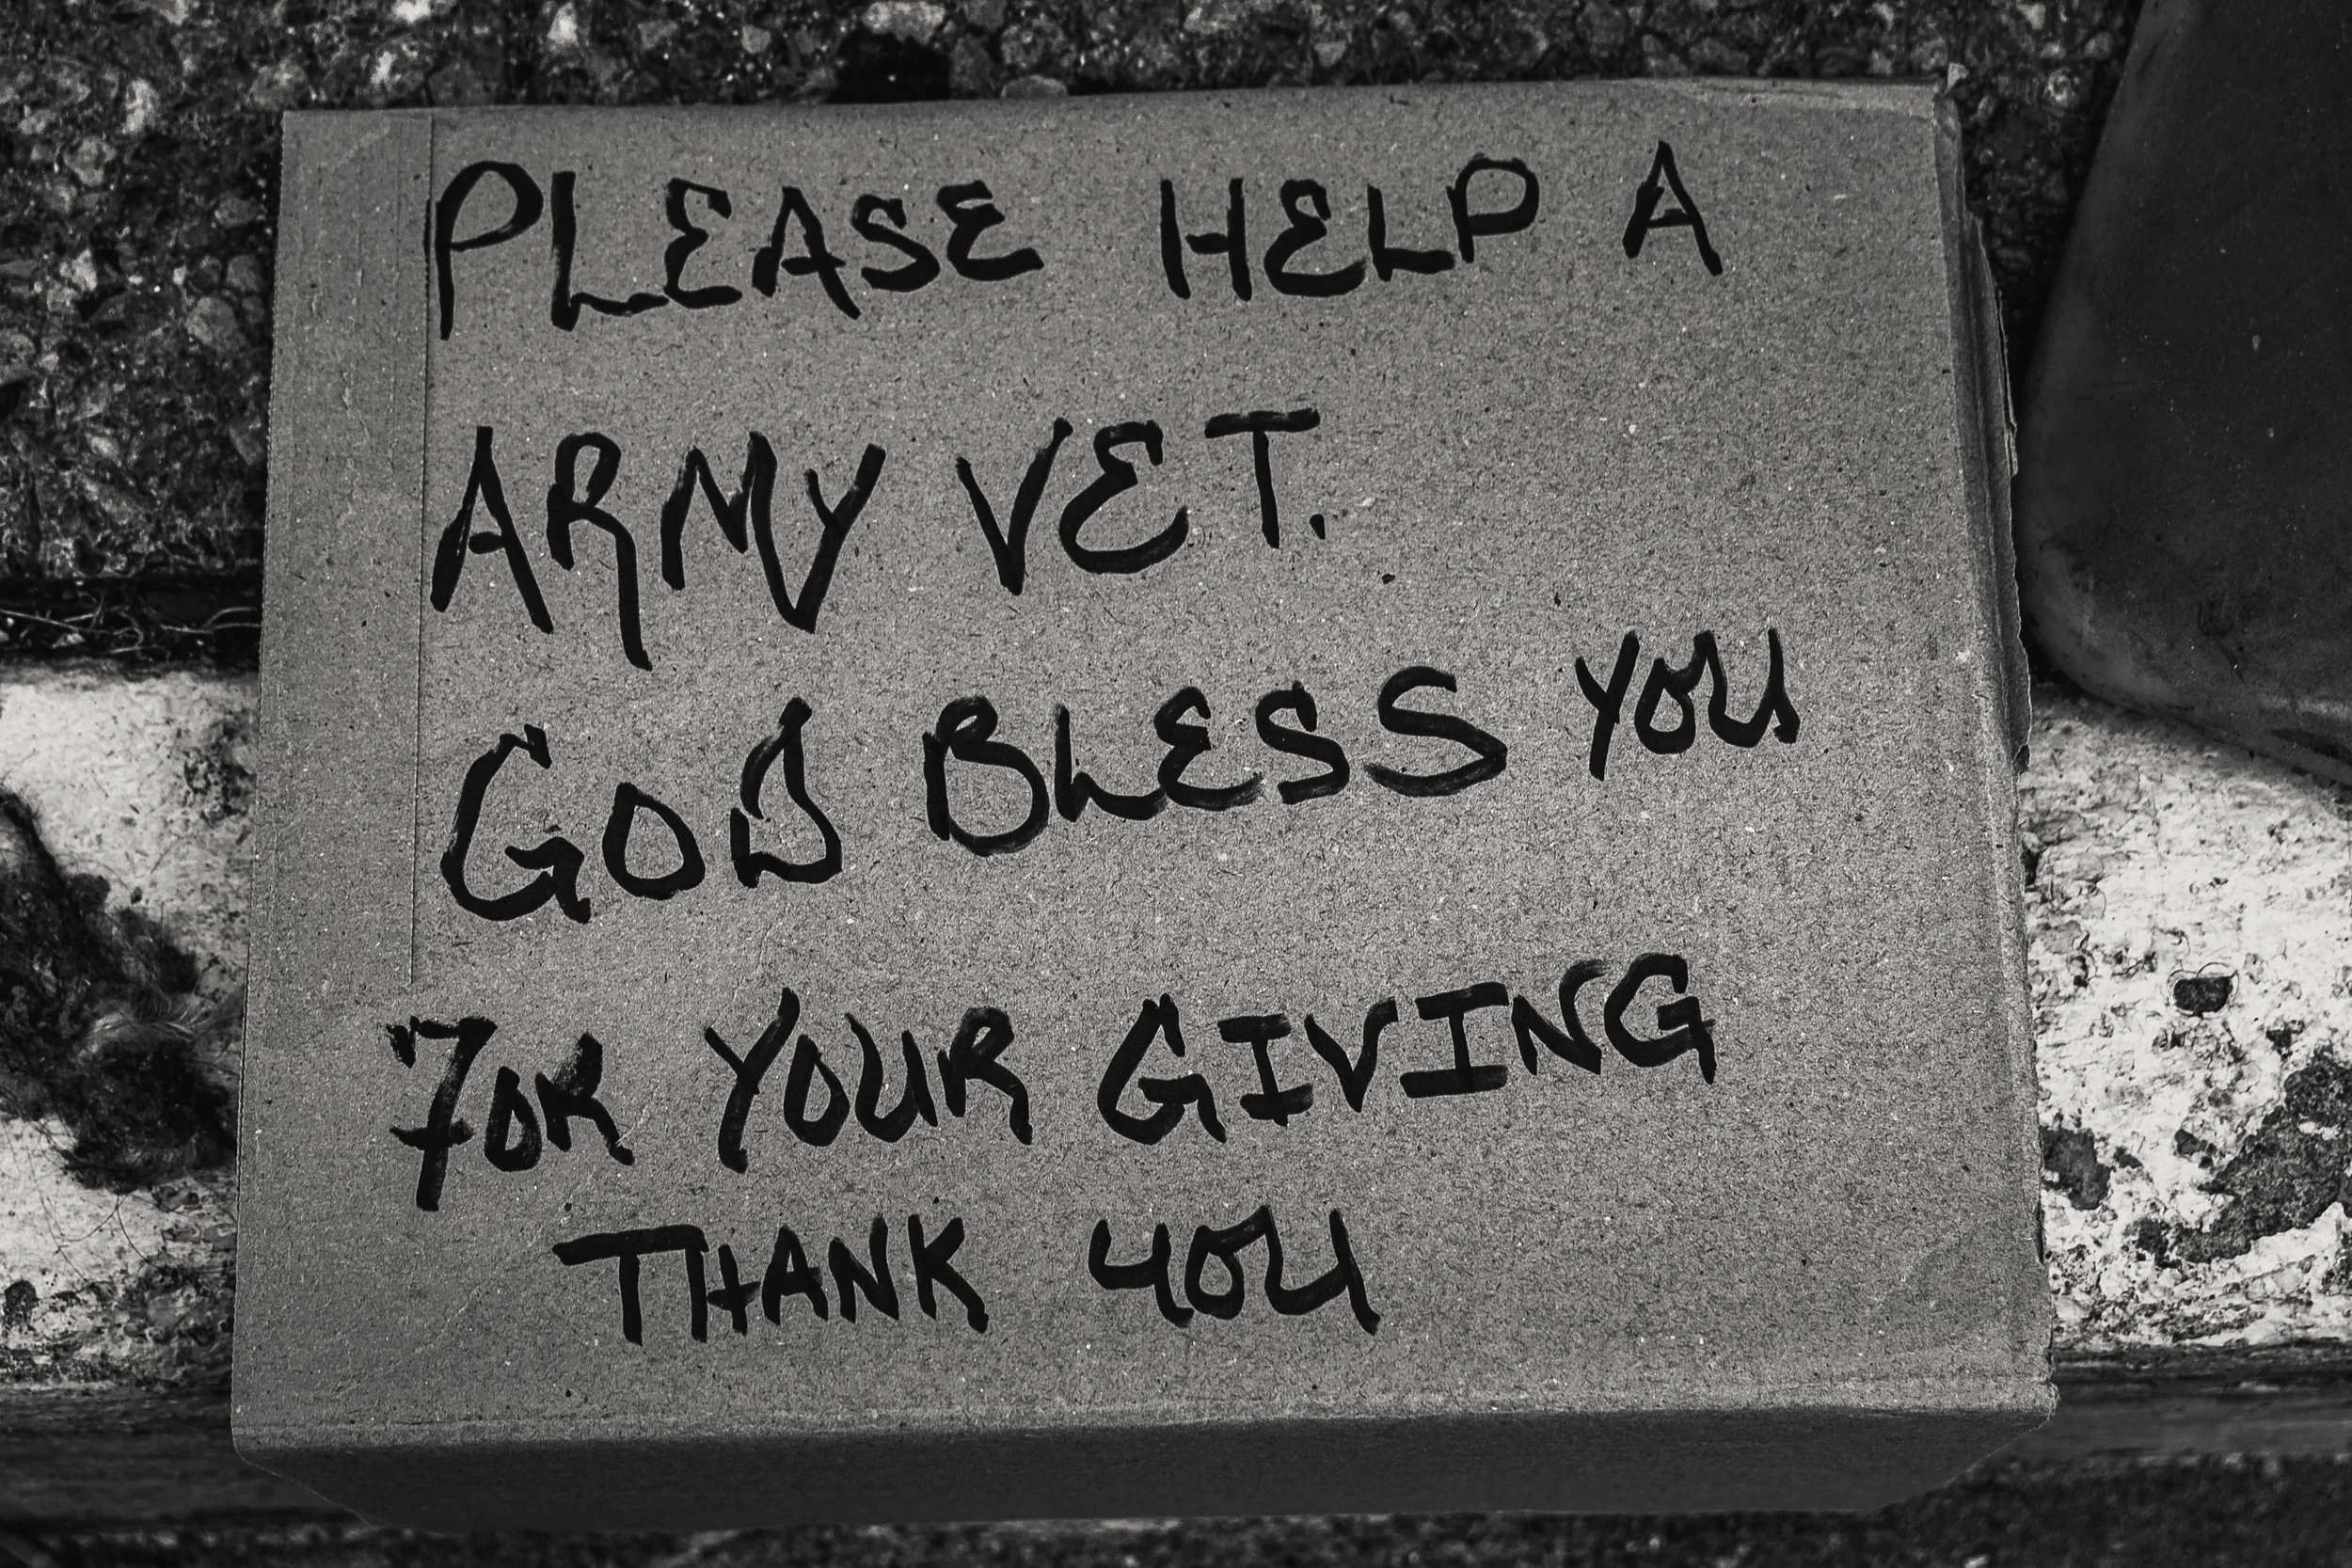 PLEASE HELP A
ARMY VET.
GOD BLESS YOU
FOR YOUR GIVING
THANK YOU